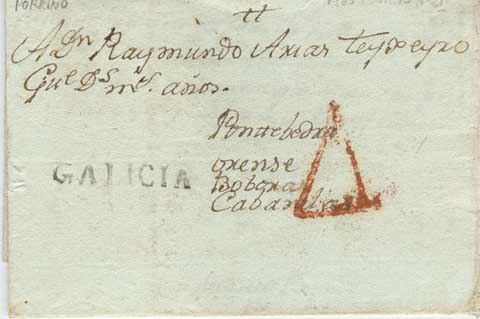 PORRIÑO
A Dn Raymundo Arias Teyxeyro
Gue Ds ms. años.
Pontebedra
orense
Boboras
Cabanelas
GALICIA